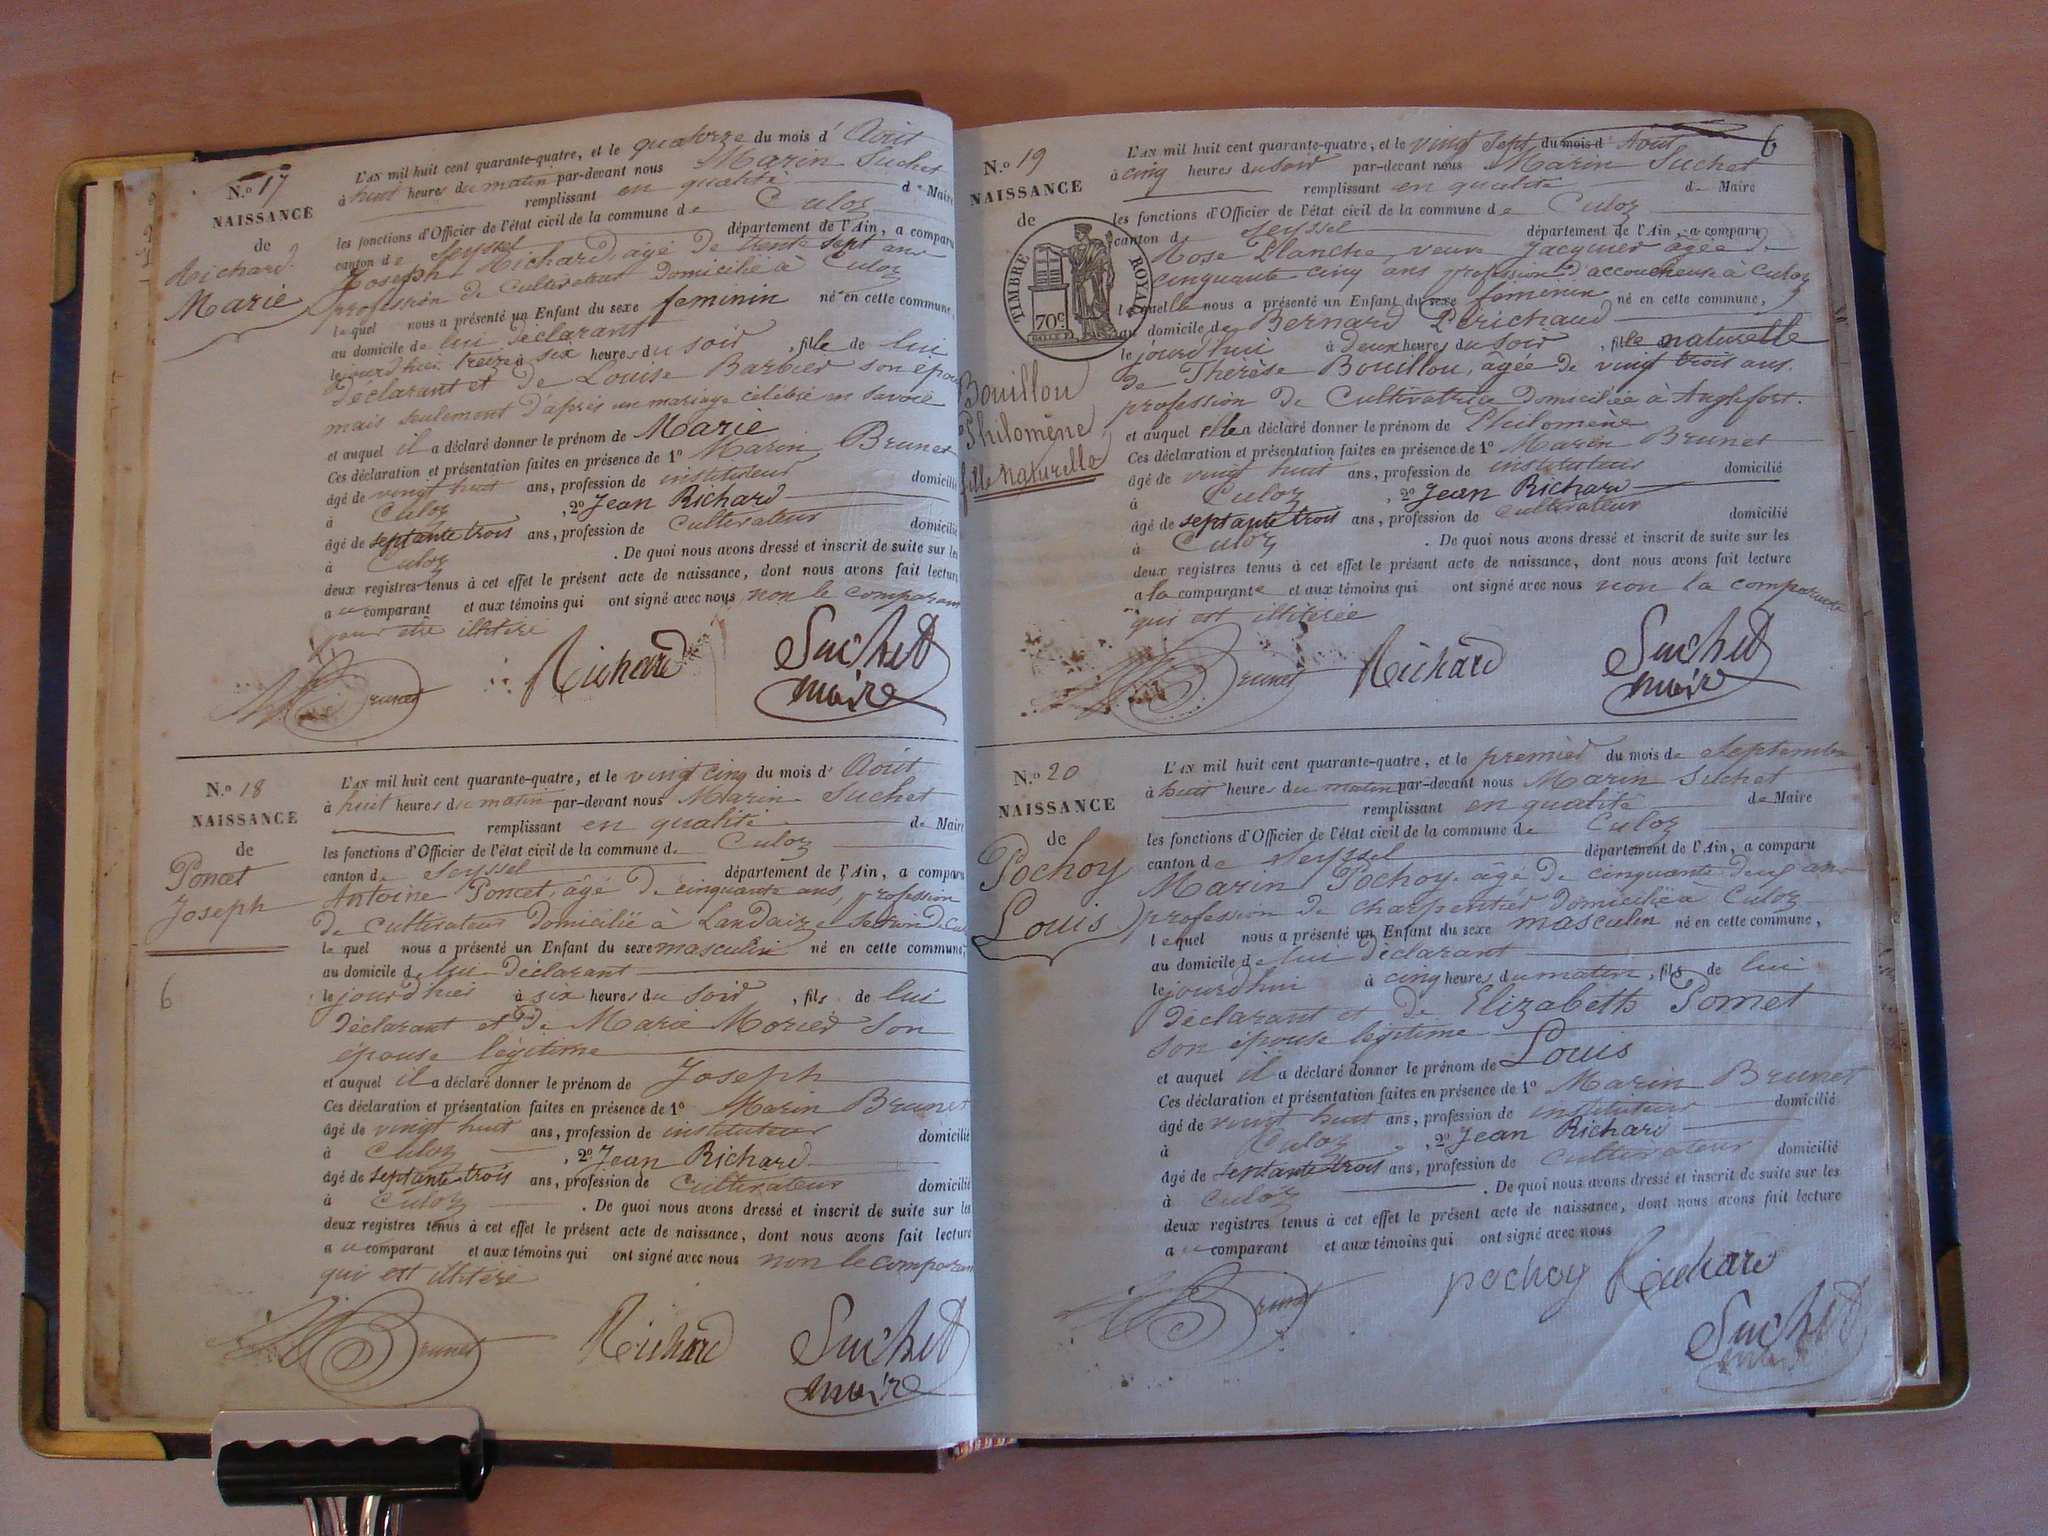 N.o 17
NAISSANCE
de
Richard
Marie
L'AN mil huit cent quarante-quatre, et le quatorze du mois d' Août
à huit heures du matin par-devant nous Marin Suchet
remplissant en qualité de Maire
les fonctions d'Officier de l'état civil de la commune de Culoz
canton de Seyssel département de l'Ain, a comparu
Joseph Richard, âgé de trente sept ans
profession de Cultivateur domicilié à Culoz
lequel nous a présenté un Enfant du sexe feminin né en cette commune,
au domicile de lui déclarant
le jourd'hier treize à six heures du soir, fille de lui
déclarant et de Louise Barbier son épouse
mais seulement d'après un mariage célébré en Savoie
et auquel il a déclaré donner le prénom de Marie
Ces déclaration et présentation faites en présence de 1o Marin Brunet
âgé de vingt huit ans, profession de instituteur domicilié
à Culoz, 2o Jean Richard
âgé de septante trois ans, profession de Cultivateur domicilié
à Culoz. De quoi nous avons dressé et inscrit de suite sur les
deux registres tenus à cet effet le présent acte de naissance, dont nous avons fait lecture
au comparant et aux témoins qui ont signé avec nous non le comparant
pour être illitéré
Brunet Richard Suchet
maire
N.o 18
NAISSANCE
de
Poncet
Joseph
6
L'AN mil huit cent quarante-quatre, et le vingt cinq du mois d' Août
à huit heures du matin par-devant nous Marin Suchet
remplissant en qualité de Maire
les fonctions d'Officier de l'état civil de la commune de Culoz
canton de Seyssel département de l'Ain, a comparu
Antoine Poncet, âgé de cinquante ans, profession
de cultivateur domicilié à Landaize section de Cul
lequel nous a présenté un Enfant du sexe masculin né en cette commune,
au domicile de lui déclarant
le jourd'hier à six heures du soir, fils de lui
déclarant et de Marie Morier son
épouse légitime
et auquel il a déclaré donner le prénom de Joseph
Ces déclaration et présentation faites en présence de 1o Marin Brunet
âgé de vingt huit ans, profession de instituteur domicilié
à Culoz, 2o Jean Richard
âgé de septante trois ans, profession de Cultivateur domicilié
à Culoz. De quoi nous avons dressé et inscrit de suite sur les
deux registres tenus à cet effet le présent acte de naissance, dont nous avons fait lecture
au comparant et aux témoins qui ont signé avec nous non le comparant
qui est illitéré
Brunet Richard Suchet
maire
6
N.o 19
NAISSANCE
de
TIMBRE ROYAL
70c
Bouillou
Philomène
fille naturelle
L'AN mil huit cent quarante-quatre, et le vingt sept du mois d' Août
à cinq heures du soir par-devant nous Marin Suchet
remplissant en qualité de Maire
les fonctions d'Officier de l'état civil de la commune de Culoz
canton de Seyssel département de l'Ain, a comparu
Rose Planche, veuve Jacquier âgée de
cinquante cinq ans profession d'accoucheuse à Culoz
laquelle nous a présenté un Enfant du sexe féminin né en cette commune,
au domicile de Bernard Périchaud
le jourd'hui à deux heures du soir, fille naturelle
de Thérèse Bouillou, âgée de vingt trois ans.
profession de Cultivatrice domiciliée à Anglefort.
et auquel elle a déclaré donner le prénom de Philomène
Ces déclaration et présentation faites en présence de 1o Marin Brunet
âgé de vingt huit ans, profession de instituteur domicilié
à Culoz, 2o Jean Richard
âgé de septante trois ans, profession de Cultivateur domicilié
à Culoz. De quoi nous avons dressé et inscrit de suite sur les
deux registres tenus à cet effet le présent acte de naissance, dont nous avons fait lecture
a la comparante et aux témoins qui ont signé avec nous non la comparante
qui est illitérée
Brunet Richard Suchet
maire
N.o 20
NAISSANCE
de
Pochoy
Louis
L'AN mil huit cent quarante-quatre, et le premier du mois de Septembre
à huit heures du matin par-devant nous Marin Suchet
remplissant en qualité de Maire
les fonctions d'Officier de l'état civil de la commune de Culoz
canton de Seyssel département de l'Ain, a comparu
Marin Pochoy, âgé de cinquante deux ans
profession de charpentier domicilié à Culoz
lequel nous a présenté un Enfant du sexe masculin né en cette commune,
au domicile de lui déclarant
le jourd'hui à cinq heures du matin, fils de lui
déclarant et de Elizabeth Pomet
son épouse légitime
et auquel il a déclaré donner le prénom de Louis
Ces déclaration et présentation faites en présence de 1o Marin Brunet
âgé de vingt huit ans, profession de instituteur domicilié
à Culoz, 2o Jean Richard
âgé de septante trois ans, profession de Cultivateur domicilié
à Culoz. De quoi nous avons dressé et inscrit de suite sur les
deux registres tenus à cet effet le présent acte de naissance, dont nous avons fait lecture
au comparant et aux témoins qui ont signé avec nous
Brunet pochoy Richard
Suchet
maire